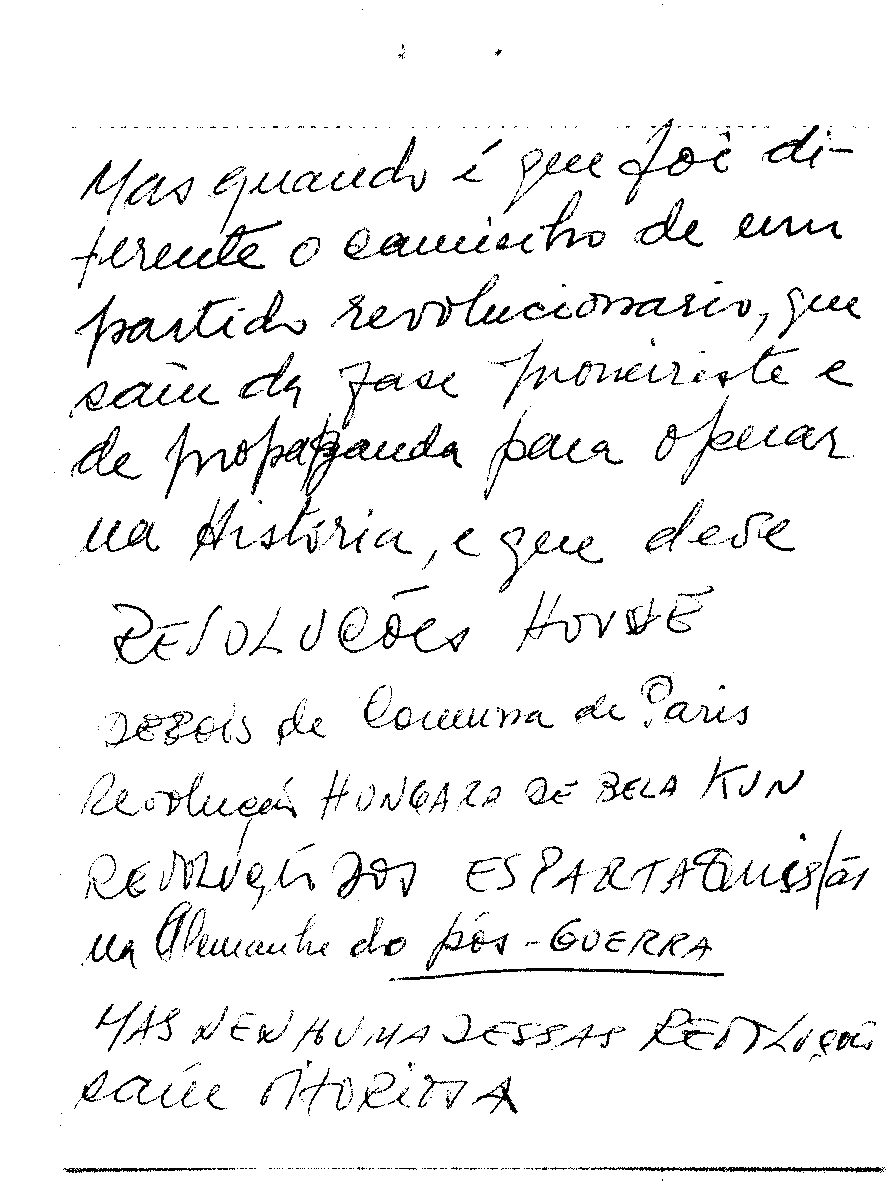 Mas quando é que foi di-
ferente o caminho de um
partido revolucionario, que
saiu da fase pioneirista e
de propaganda para operar
na História, e que deve
REVOLUÇÕES HOUVE
DEPOIS de Comuna de Paris
Revolução HUNGARA DE BELA KUN
REVOLUÇÃO DOS ESPARTAQUISTAS
na Alemanha do pós-GUERRA
MAS NENHUMA DESSAS REVOLUÇÕES
saiu VITORIOSA